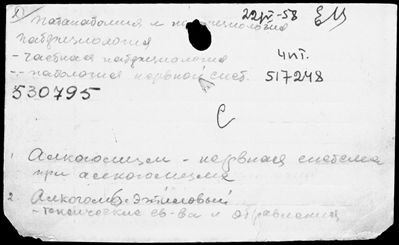 Патанатомия и патфизиология 22/IV-58
патфизиология
- частная патфизиология 4пт.
- патология нервной сист. 517248
530795
С
1. Алкоголизм - нервная система
при алкоголизме
2. Алкоголь этиловый
- токсические св-ва и отравления